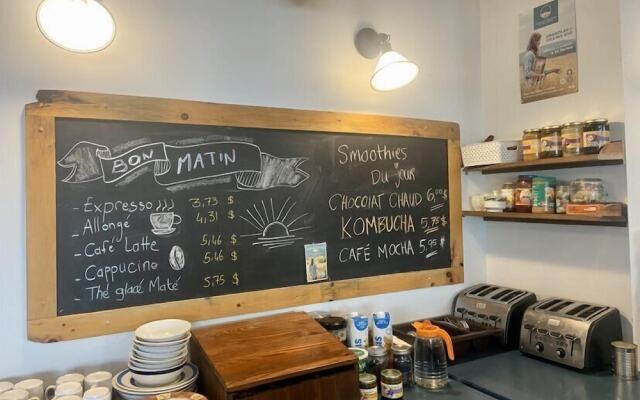 BON MATIN
- Expresso 3,73 $
- Allongé 4,31 $
- Café Latte 5,46 $
- Cappucino 5,46 $
- Thé glacé Maté 5,75 $
Smoothies
Du jour
CHOCLAT CHAUD 6,00 $
KOMBUCHA 5,75 $
CAFÉ MOCHA 5,95 $